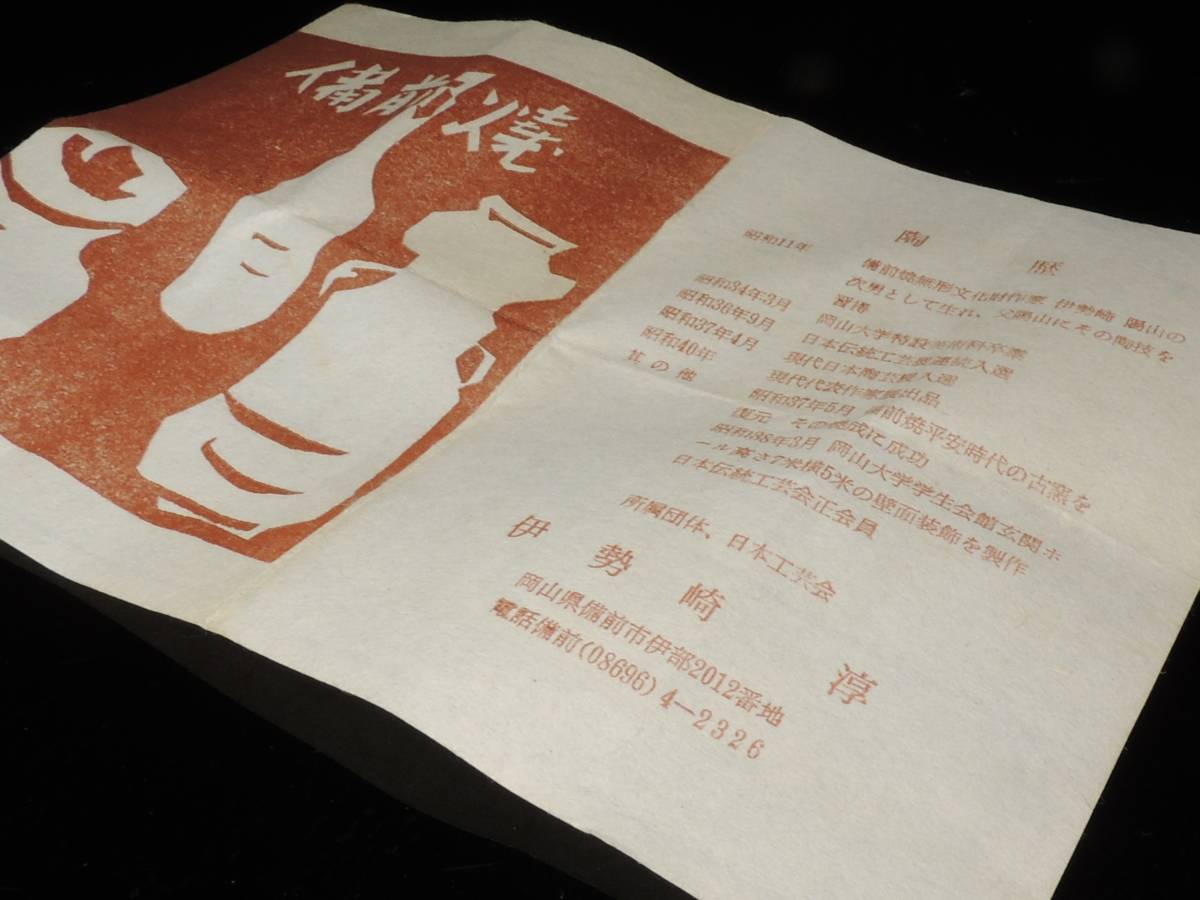 備前焼
陶歴
昭和11年 備前焼無形文化財作家 伊勢崎 陽山の
次男として生れ、父陽山にその陶技を
習得
昭和34年3月 岡山大学特設美術科卒業
昭和36年9月 日本伝統工芸展連続入選
昭和37年4月 現代日本陶芸展入選
昭和40年 現代代表作家展出品
其の他 昭和37年5月 備前焼平安時代の古窯を
復元 その焼成に成功
昭和38年3月 岡山大学学生会館玄関ホ
ール高さ7米横5米の壁面装飾を製作
日本伝統工芸会正会員
所属団体、日本工芸会
伊勢崎淳
岡山県備前市伊部2012番地
電話備前(08696)4―2326